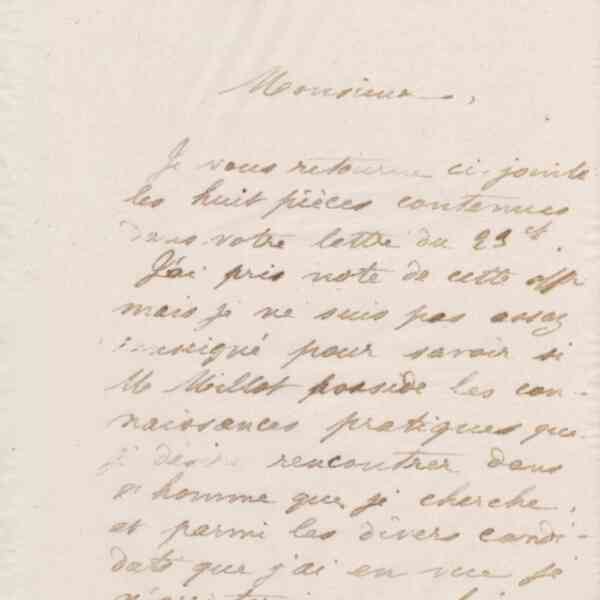 Monsieur,
Je vous retourne ci-jointe
les huit pièces contenues
dans votre lettre du 23 ct.
J'ai pris note de cette offre
mais je ne suis pas assez
renseigné pour savoir si
Mr Millot possède les con-
naissances pratiques que
je désire rencontrer dans
l'homme que je cherche,
et parmi les divers candi-
dats que j'ai en vue je